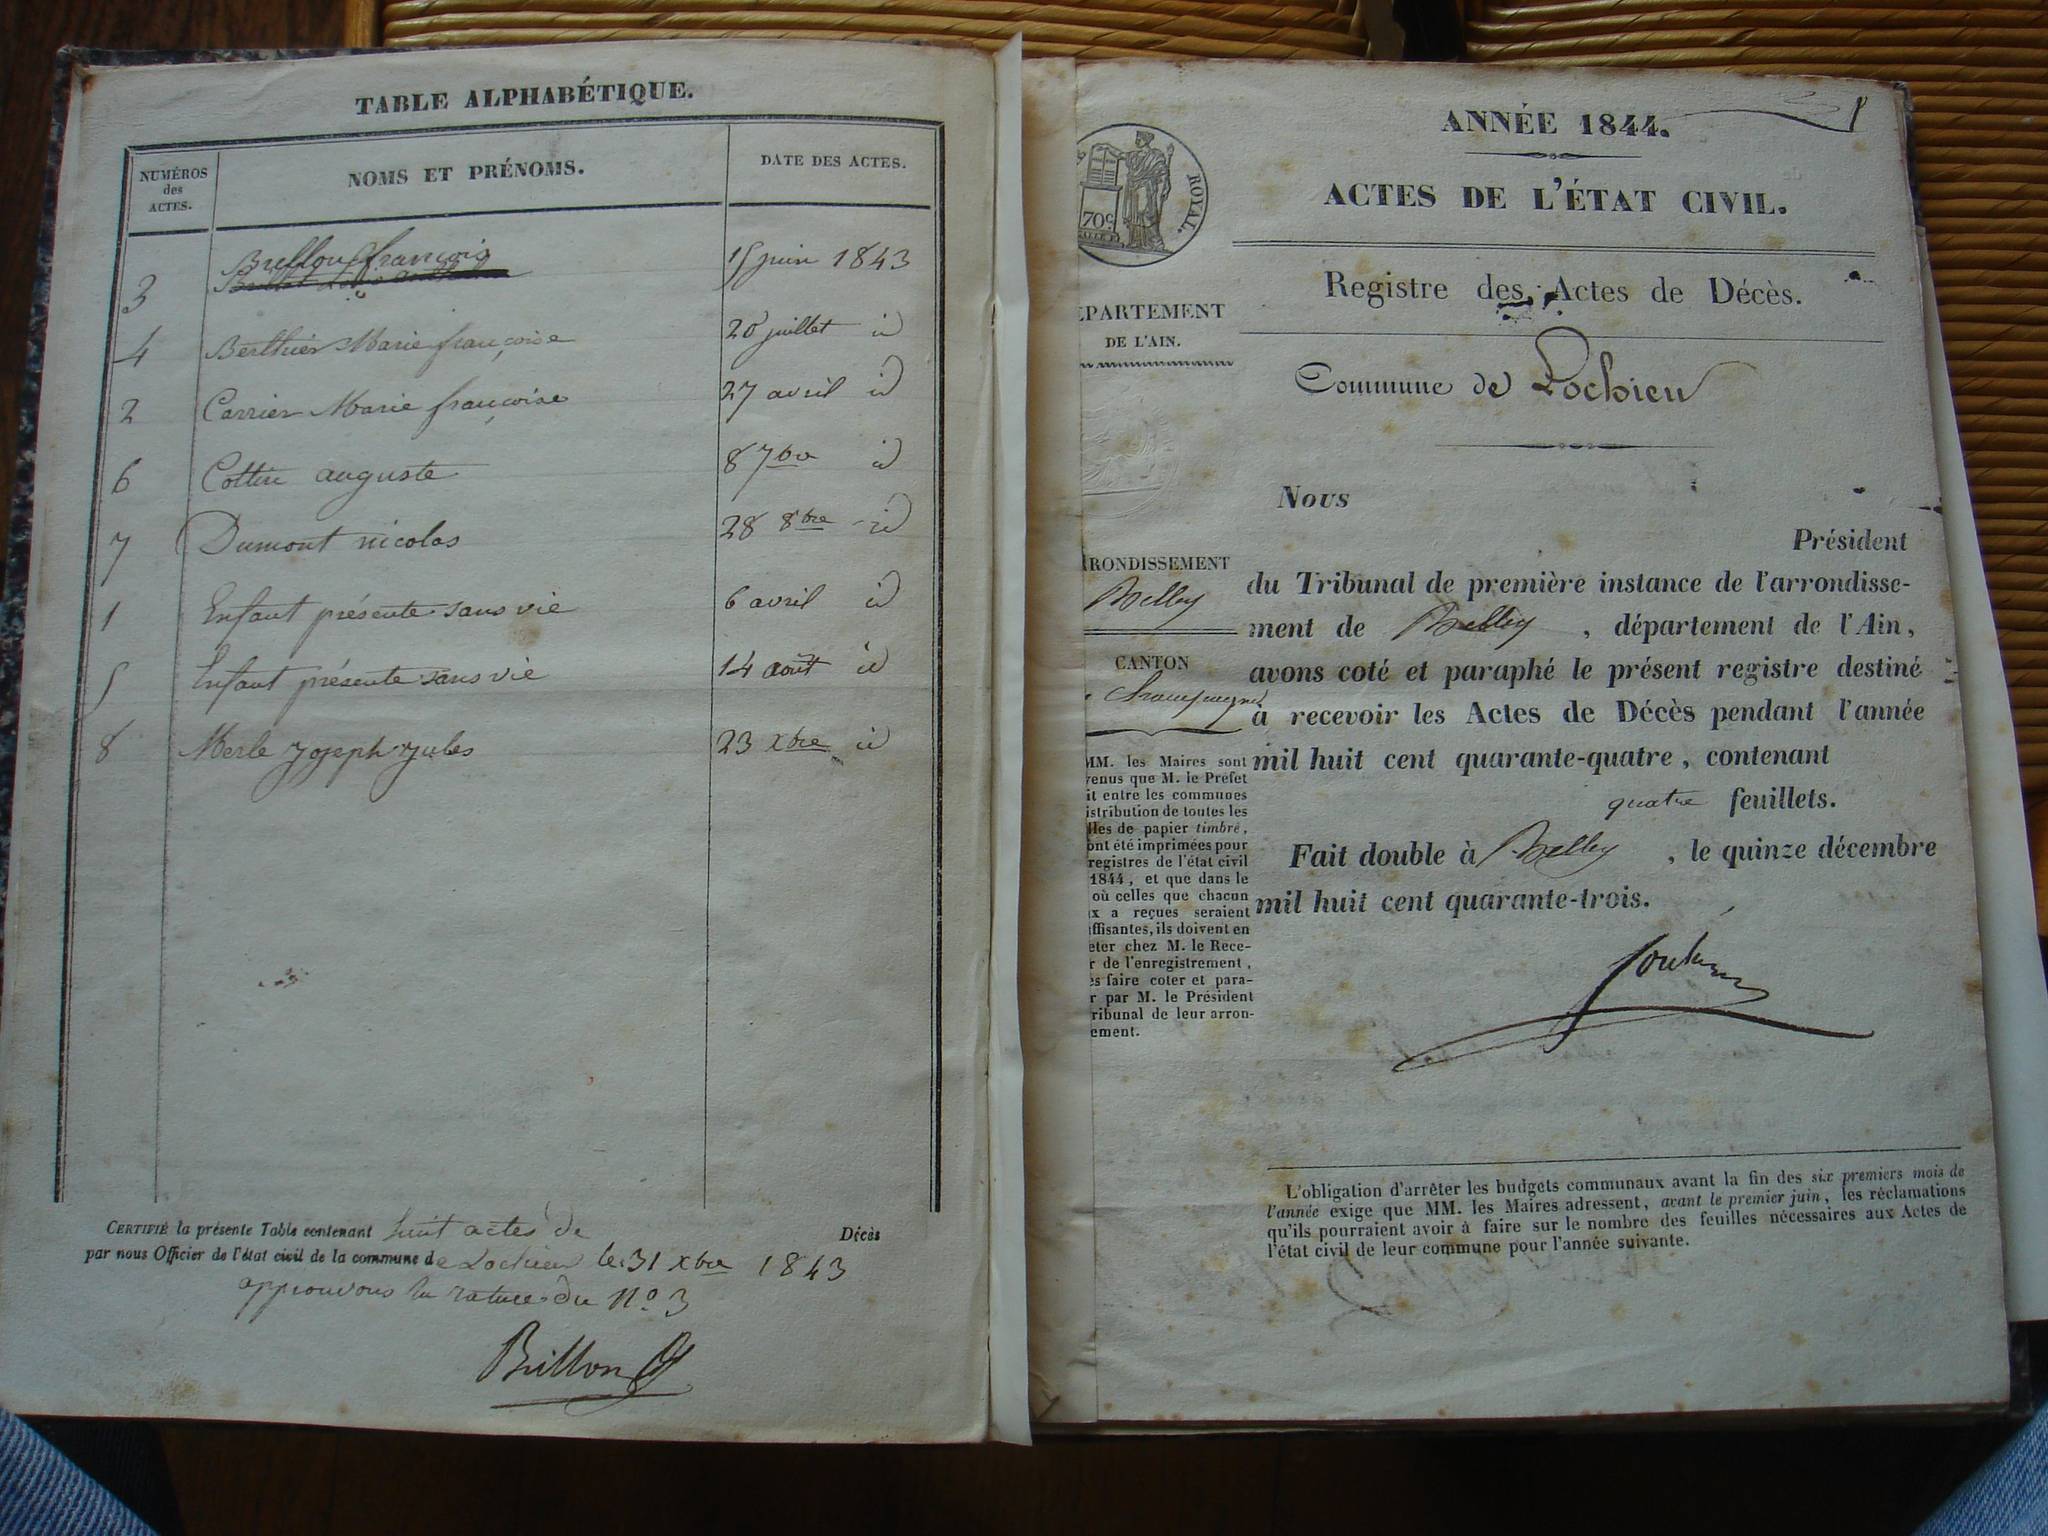 TABLE ALPHABÉTIQUE.
NUMÉROS des ACTES.
NOMS ET PRÉNOMS.
DATE DES ACTES.
3 françois 15 juin 1843
4 Berthier Marie françoise 20 juillet id
2 Carrier Marie françoise 27 avril id
6 Cottin auguste 8 7bre id
7 Dumont nicolas 28 8bre id
1 Enfant présenté sans vie 6 avril id
5 Enfant présenté sans vie 14 août id
8 Merle Joseph Jules 23 xbre id
CERTIFIÉ la présente Table contenant huit actes de Décès
par nous Officier de l'état civil de la commune de Lochieu le 31 xbre 1843
approuvons la rature du N° 3
Billon
ROYAL.
70c
ANNÉE 1844.
ACTES DE L'ÉTAT CIVIL.
Registre des Actes de Décès.
ÉPARTEMENT
DE L'AIN.
Commune de Lochieu
RONDISSEMENT
Belley
CANTON
Champagne
MM. les Maires sont
venus que M. le Préfet
it entre les communes
istribution de toutes les
lles de papier timbré,
ont été imprimées pour
registres de l'état civil
1844, et que dans le
où celles que chacun
x a reçues seraient
ffisantes, ils doivent en
eter chez M. le Rece-
r de l'enregistrement,
es faire coter et para-
r par M. le Président
ribunal de leur arron-
ement.
Nous
Président
du Tribunal de première instance de l'arrondisse-
ment de Belley, département de l'Ain,
avons coté et paraphé le présent registre destiné
à recevoir les Actes de Décès pendant l'année
mil huit cent quarante-quatre, contenant
quatre feuillets.
Fait double à Belley, le quinze décembre
mil huit cent quarante-trois.
L'obligation d'arrêter les budgets communaux avant la fin des six premiers mois de
l'année exige que MM. les Maires adressent, avant le premier juin, les réclamations
qu'ils pourraient avoir à faire sur le nombre des feuilles nécessaires aux Actes de
l'état civil de leur commune pour l'année suivante.